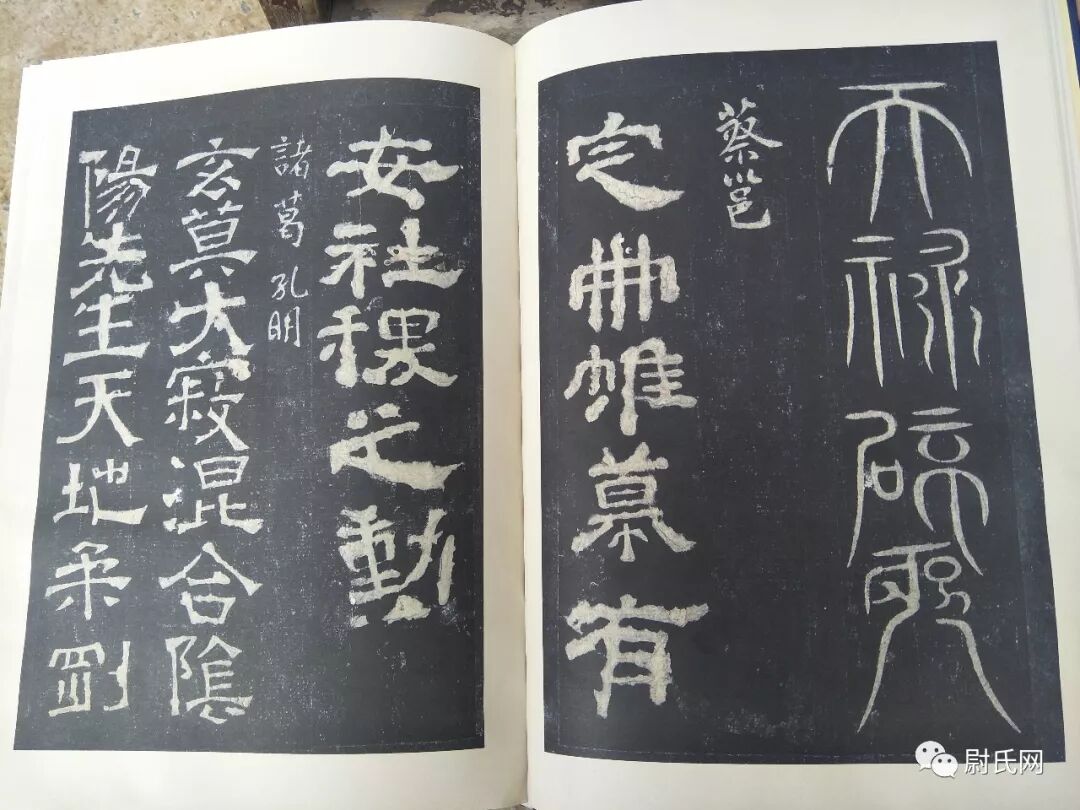 天祿
蔡邕
定冊帷幕有
安社稷之勳
諸葛孔明
玄莫大寂混合陰
陽先生天地柔剛
尉氏网